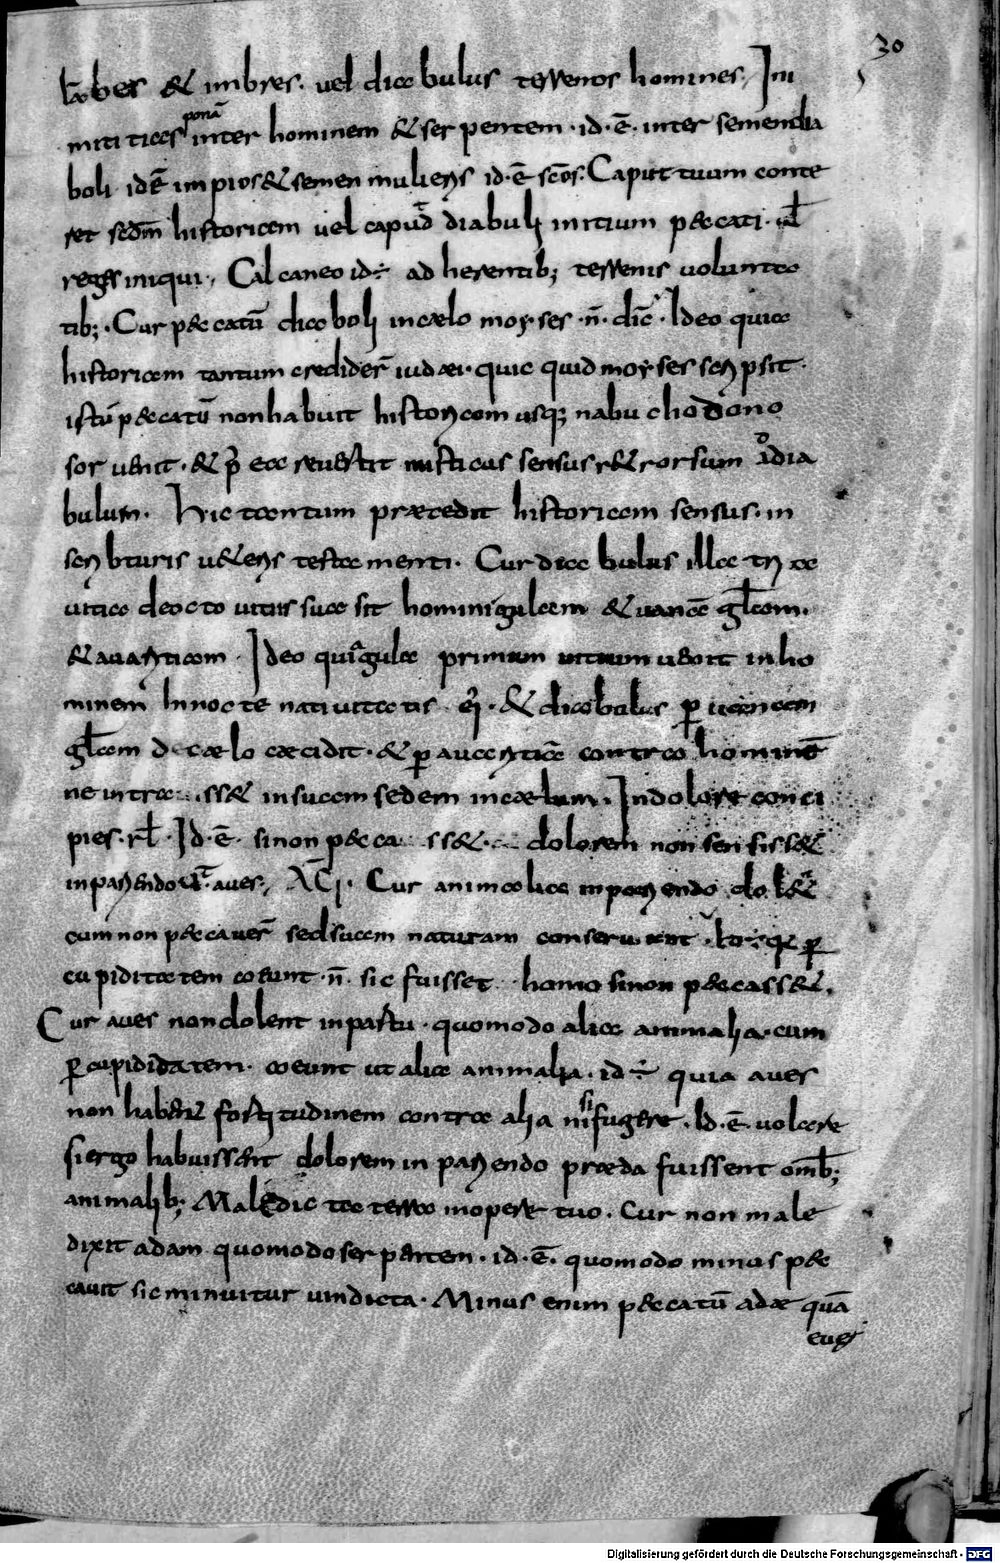 30
& imbres. vel diabulus terrenos homines. Ini
miticias ponā inter hominem & serpentem. id. ē. inter semen dia
boli idē impios & semen mulieris id. ē scōs. Caput tuum conte
ret scdm historiam vel capud diabuli initium peccati. vl
reges iniqui. Calcaneo id ÷ adherentib; terrenis volunta
tib;. Cur peccatū diaboli in cælo moyses . n̄. dic̄. Ideo quia
historiam tantum credider̄ iudæi. quic quid moyses scripsit.
istū peccatū non habuit historiam usq; nabuchodono
sor venit. & p̄ ea revertit misticus sensus r&rorsum ad dia
bulum. Hic tantum præcedit historiam sensus. in
scribturis veteris testamenti. Cur diabulus illa tria
vitia de octo vitiis suasit homini gulam & vanā gl̄am.
& avariticam. Ideo quia gula primum vitium venit in ho
minem hinnocte nativitatis ei. & diabulus per vanam
gl̄am de cælo cæcidit. & per avaritiā contra hominē
ne intra ss& in suam sedem in cælum. In dolore conci
pies. rl. Id. ē. si non pecca ss&. dolorem non sensiss&
in pariendo aves. Cur animalia in pariendo dol&
cum non peccaver̄ sed suam naturam conserv ant. per
cupiditatem coeunt. n̄. sic fuisset homo si non peccass&.
Cur aves non dolent in partu. quomodo alia animalia. cum
per cupidida tem. coeunt ut alia animalia. id ÷ quia aves
non habent fortitudinem contra alia nisi fugere. Id. ē. volare
si ergo habuissent dolorem in pariendo præda fuissent omb;
animalib; Maledic ta terra in opere tuo. Cur non male
dixit adam quomodo serpentem. id. ē. quomodo minus pec
cavit sic minuitur vindicta. Minus enim peccatū adæ quā
evę
Digitalisierung gefördert durch die Deutsche Forschungsgemeinschaft - DFG